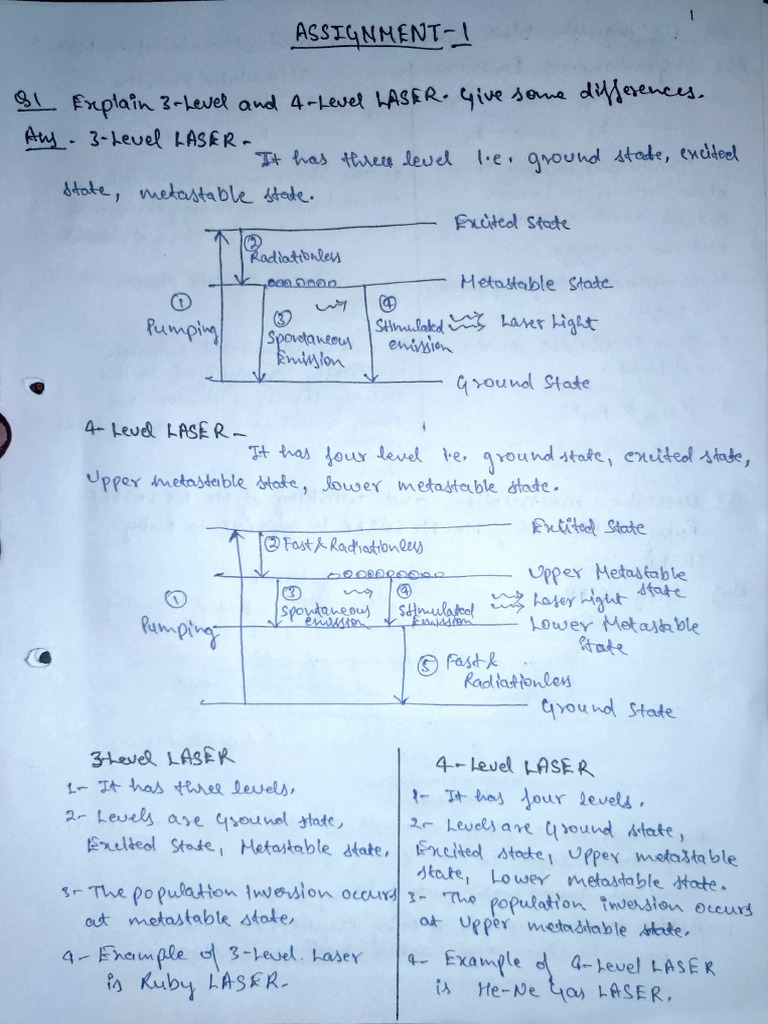 1
ASSIGNMENT-1
Q1 Explain 3-Level and 4-Level LASER. Give some differences.
Ans. 3-Level LASER-
It has three level i.e. ground state, excited
state, metastable state.
Excited State
② Radiationless
Metastable State
① Pumping
③ Spontaneous Emission
④ Stimulated emission
Laser Light
Ground State
4-Level LASER-
It has four level i.e. ground state, excited state,
Upper metastable state, lower metastable state.
Excited State
② Fast & Radiationless
Upper Metastable State
① Pumping
③ Spontaneous emission
④ Stimulated Emission
Laser Light
Lower Metastable State
⑤ Fast & Radiationless
Ground State
3-Level LASER
1- It has three levels.
2- Levels are Ground state,
Excited State, Metastable state.
3- The population inversion occurs
at metastable state.
4- Example of 3-Level Laser
is Ruby LASER.
4-Level LASER
1- It has four levels.
2- Levels are Ground state,
Excited state, Upper metastable
state, Lower metastable state.
3- The population inversion occurs
at Upper metastable state.
4- Example of 4-Level LASER
is He-Ne Gas LASER.